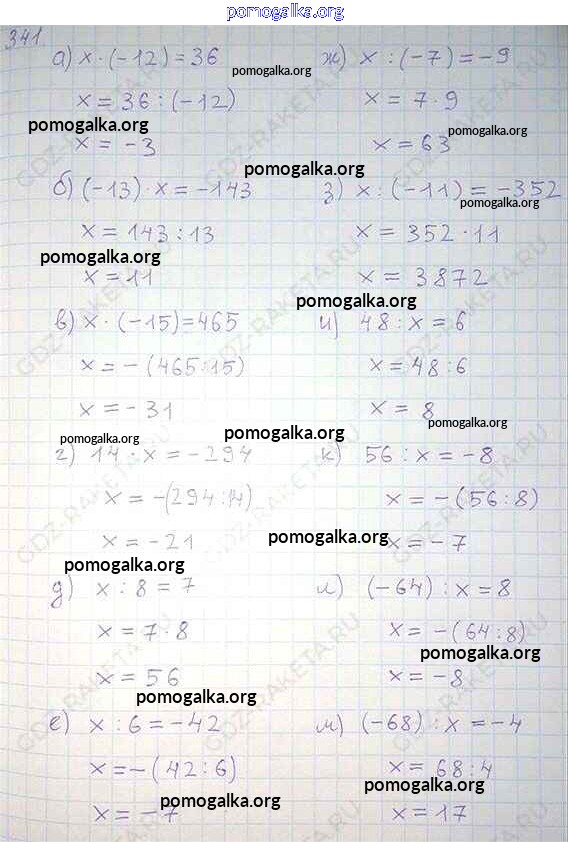 pomogalka.org
341.
а) x · (-12) = 36
pomogalka.org
x = 36 : (-12)
pomogalka.org
x = -3
б) (-13) · x = -143
x = 143 : 13
pomogalka.org
x = 11
в) x · (-15) = 465
x = - (465:15)
x = -31
pomogalka.org
г) 14 · x = -294
x = -(294:14)
x = -21
pomogalka.org
д) x : 8 = 7
x = 7 · 8
x = 56
pomogalka.org
е) x : 6 = -42
x = -(42:6)
pomogalka.org
x = -7
ж) x : (-7) = -9
x = 7 · 9
pomogalka.org
x = 63
pomogalka.org
з) x : (-11) = -352
pomogalka.org
x = 352 · 11
x = 3872
pomogalka.org
и) 48 : x = 6
x = 48 : 6
x = 8
pomogalka.org
pomogalka.org
к) 56 : x = -8
x = -(56:8)
pomogalka.org
x = -7
л) (-64) : x = 8
x = -(64:8)
pomogalka.org
x = -8
м) (-68) : x = -4
x = 68:4
pomogalka.org
x = 17
GDZ-RAKETA.RU